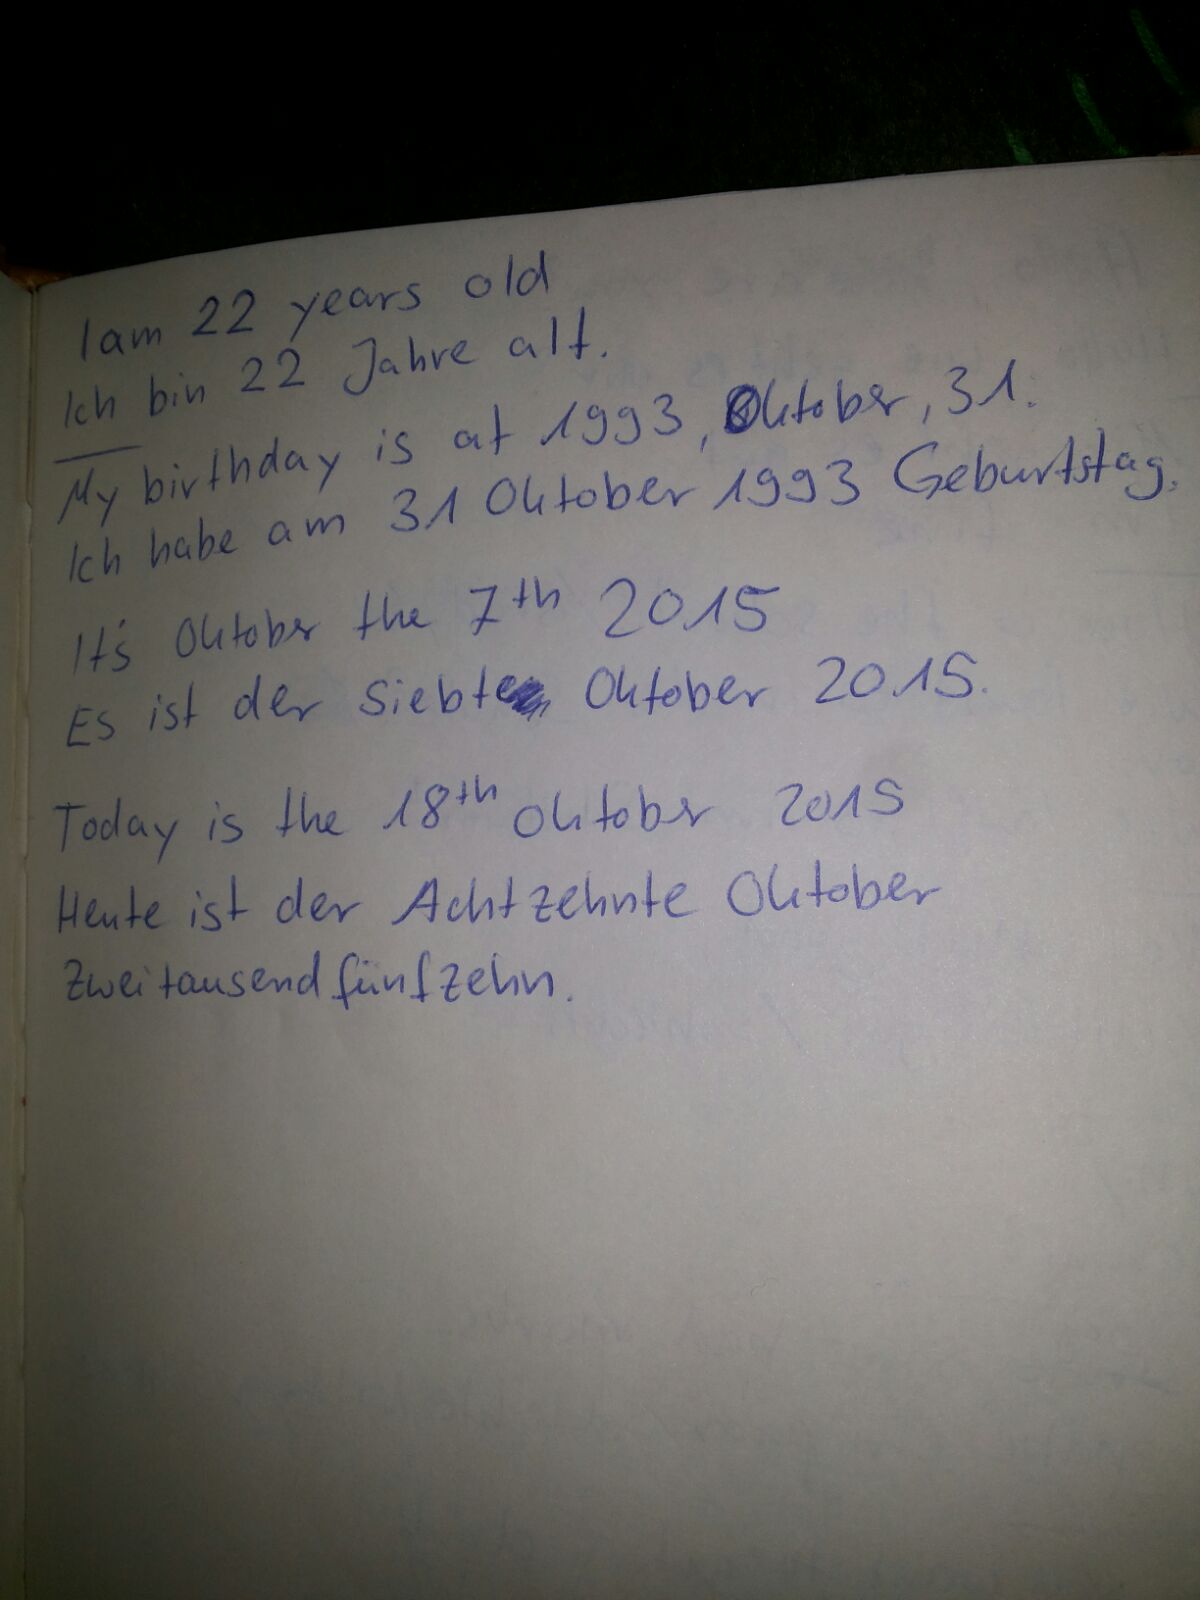 I am 22 years old
Ich bin 22 Jahre alt.
My birthday is at 1993, Oktober, 31.
Ich habe am 31 Oktober 1993 Geburtstag.
It's Oktober the 7th 2015
Es ist der Siebte Oktober 2015.
Today is the 18th Oktober 2015
Heute ist der Achtzehnte Oktober
Zweitausendfünfzehn.